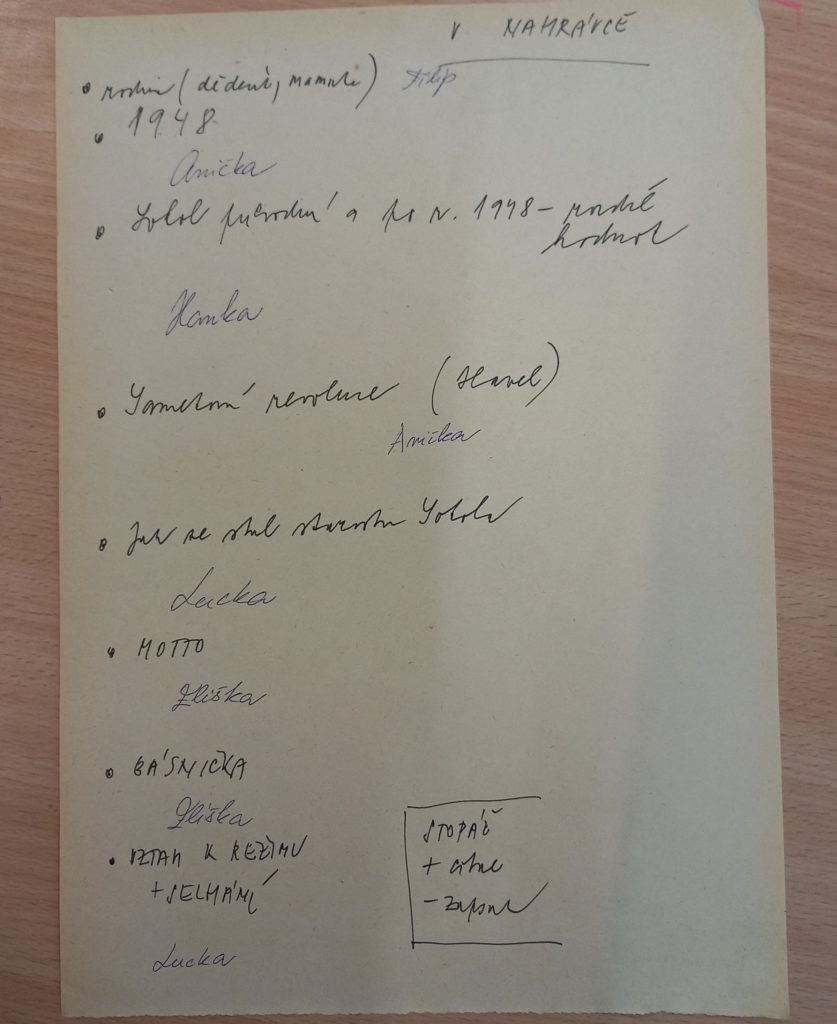 V NAHRÁVCE
• rodin (dědeč, maminka) Filip
• 1948
Anička
• Sokol původní a po r. 1948 – rozdíl
hodnot
Hanka
• Sametová revoluce (Havel)
Anička
• Jak se stal starostou Sokola
Lucka
• MOTTO
Eliška
• BÁSNIČKA
Eliška
• VZTAH K REŽIMU
+ SELHÁNÍ
Lucka
STOPÁŽ
+ citace
– zapsat